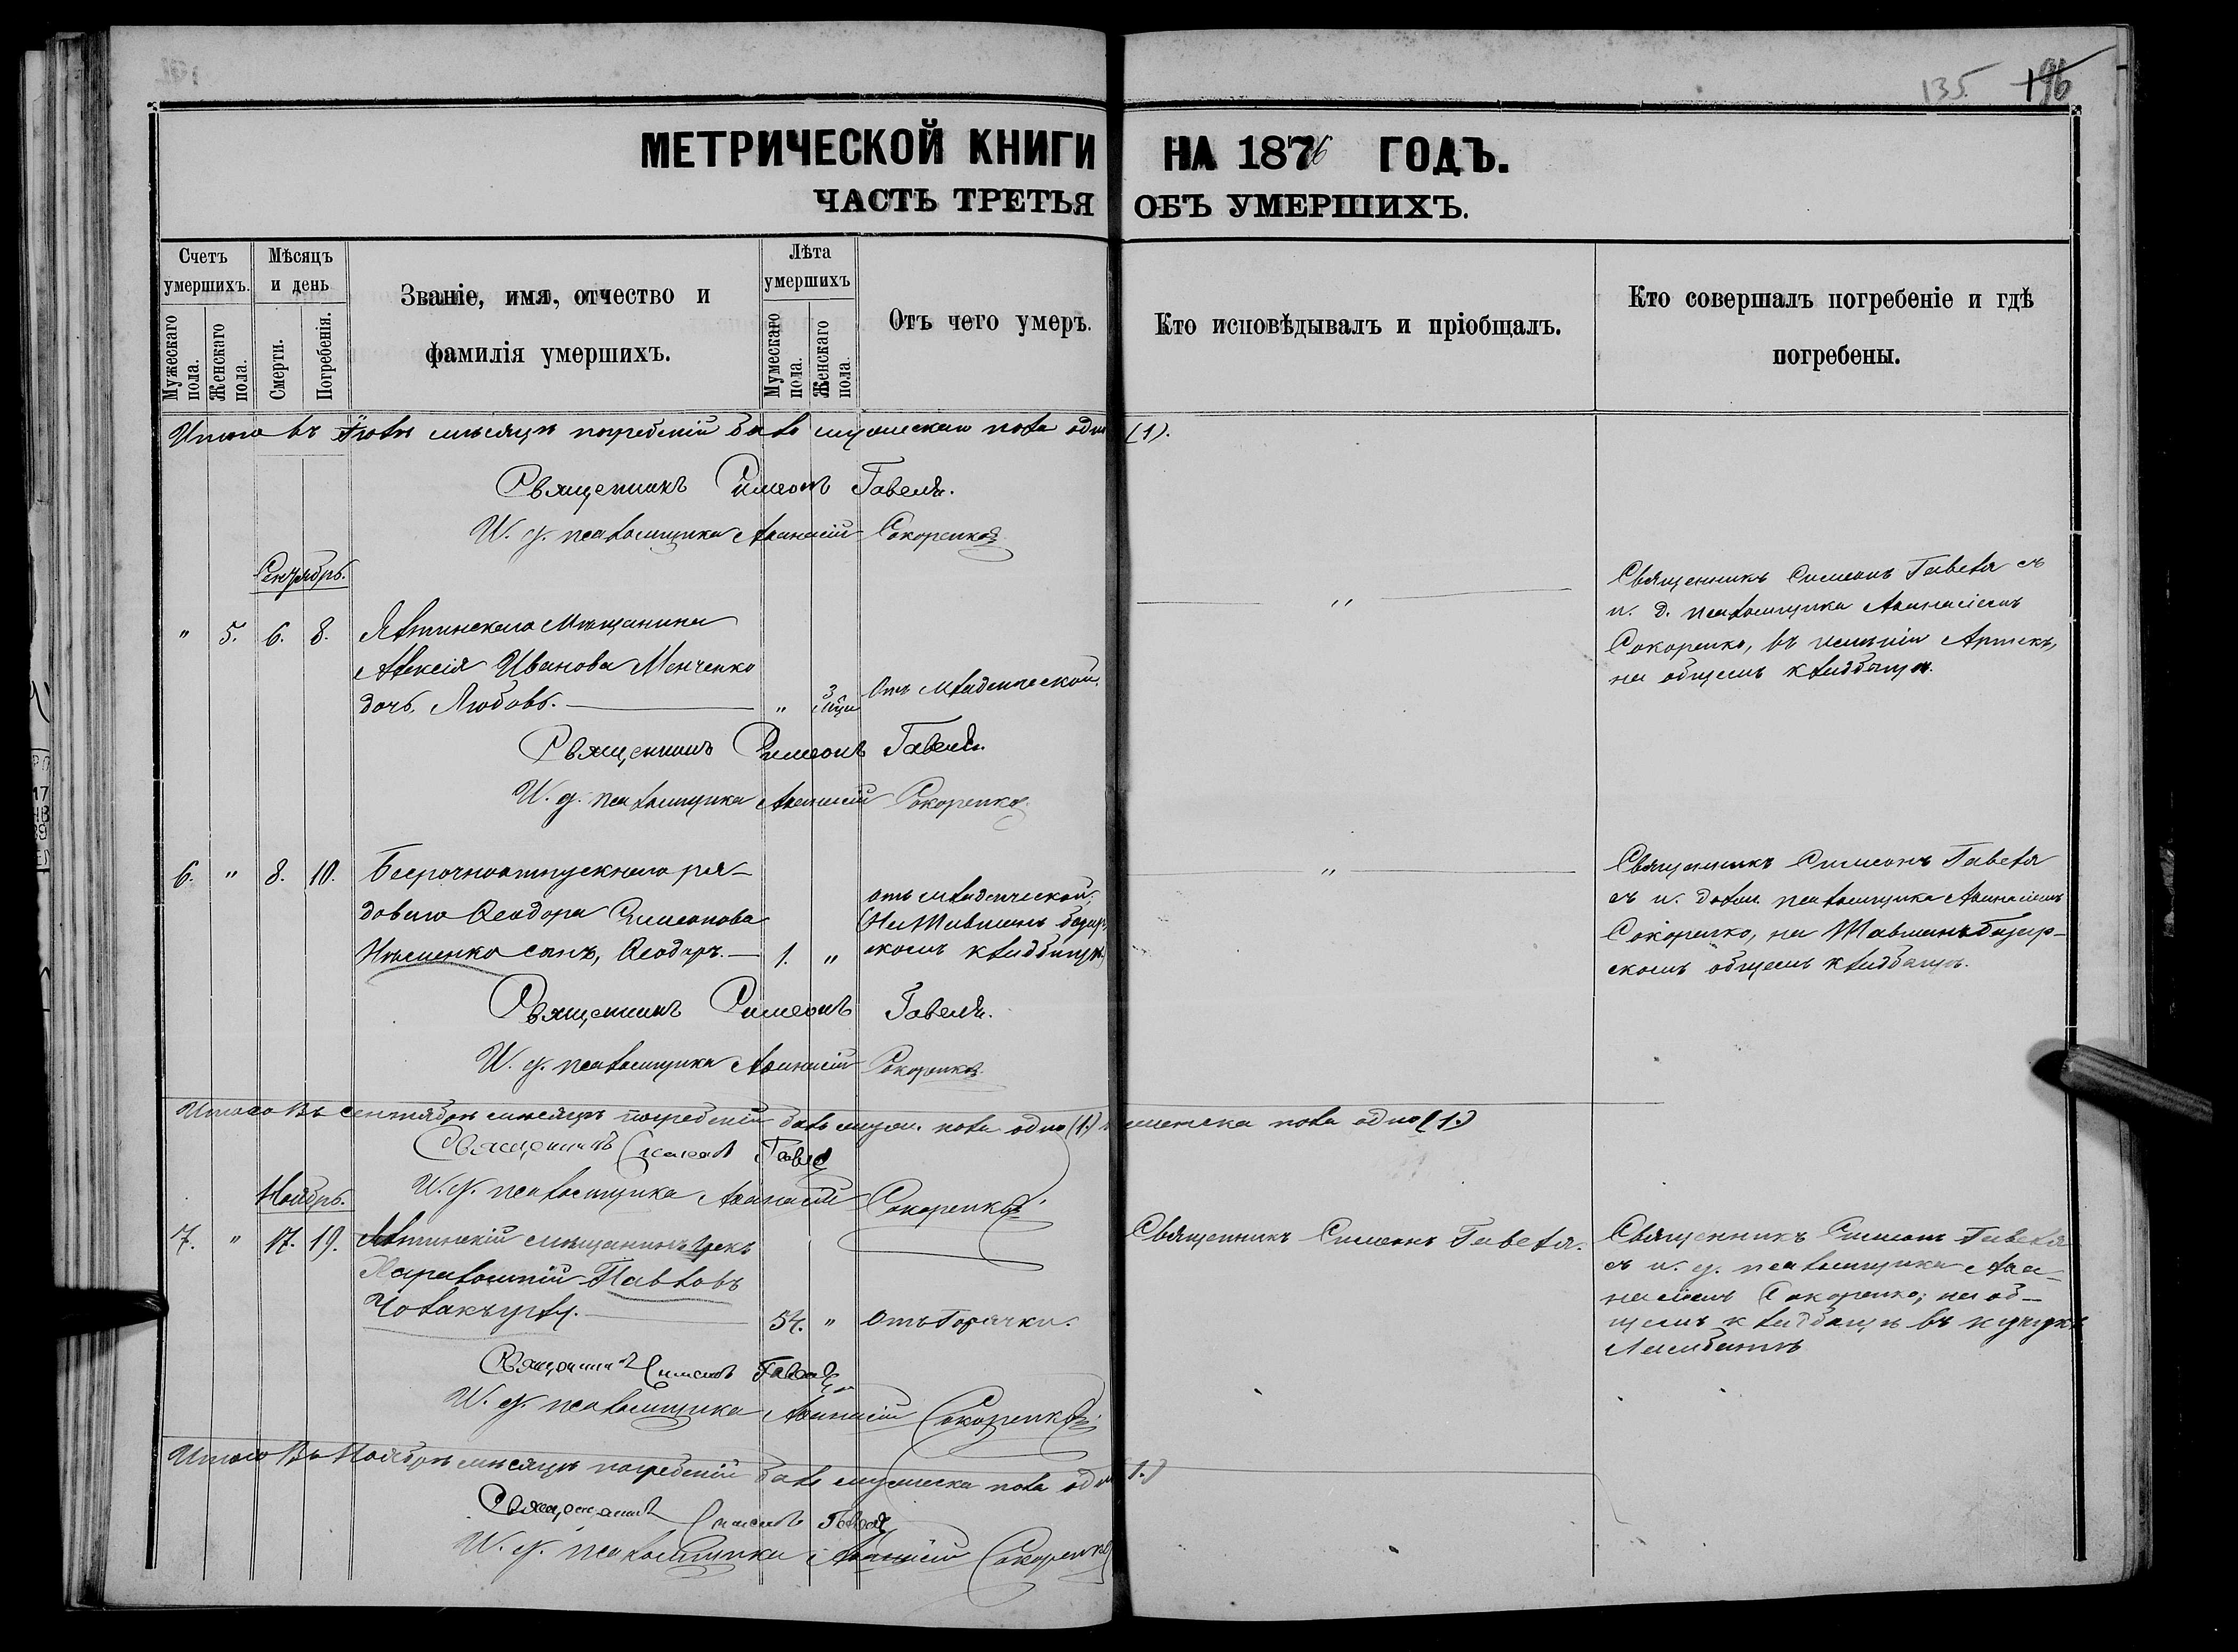 135 196
МЕТРИЧЕСКОЙ КНИГИ НА 1876 ГОДЪ.
ЧАСТЬ ТРЕТЬЯ ОБЪ УМЕРШИХЪ.
Счетъ умершихъ.
Мужескаго пола.
Женскаго пола.
Мѣсяцъ и день
Смерти.
Погребенія.
Званіе, имя, отчество и
фамилія умершихъ.
Лѣта умершихъ
Мужескаго пола.
Женскаго пола.
Отъ чего умеръ.
Кто исповѣдывалъ и пріобщалъ.
Кто совершалъ погребеніе и гдѣ
погребены.
Итого въ мѣсяцѣ погребеній было мужескаго пола одно (1).
Священникъ Симеонъ Гавеля.
И. д. псаломщика Аѳанасій Сокоренко
Сентябрь.
" 5. 6. 8.
Ялтинскаго Мѣщанина
Алексія Иванова Менченко
дочь Любовь. " 3 мѣц
Отъ младенческой.
"
Священникъ Симеонъ Гавеля съ
и. д. псаломщика Аѳанасіемъ
Сокоренко, въ имѣніи Артекъ,
на общемъ кладбищѣ.
Священникъ Симеонъ Гавеля.
И. д. псаломщика Аѳанасій Сокоренко
6. " 8. 10.
Безсрочноотпускнаго ря-
доваго Ѳеодора Симеонова
сынъ, Ѳеодоръ. 1. "
отъ младенческой,
скомъ кладбищѣ)
"
Священникъ Симеонъ Гавеля
съ и. долж. псаломщика Аѳанасіемъ
Сокоренко, на
скомъ общемъ кладбищѣ.
Священникъ Симеонъ Гавеля.
И. д. псаломщика Аѳанасій Сокоренко
Итого въ сентябрѣ мѣсяцѣ погребеній было муж. пола одно (1.) женска пола одно (1.)
Священникъ Симеонъ Гавеля
И. д. псаломщика Аѳанасій Сокоренко
Ноябрь.
7. " 17. 19.
Ялтинскій мѣщанинъ грекъ
Харалампій Павловъ
54. " Отъ Горячки.
Священникъ Симеонъ Гавеля.
Священникъ Симеонъ Гавеля
съ и. д. псаломщика Аѳа-
насіемъ Сокоренко; на об-
щемъ кладбищѣ въ Кучукъ
Ламбатѣ
Священникъ Симеонъ Гавеля
И. д. псаломщика Аѳанасій Сокоренко
Итого въ Ноябрѣ мѣсяцѣ погребеній было мужеска пола одно (1.)
Священникъ Симеонъ Гавеля
И. д. псаломщика Аѳанасій Сокоренко